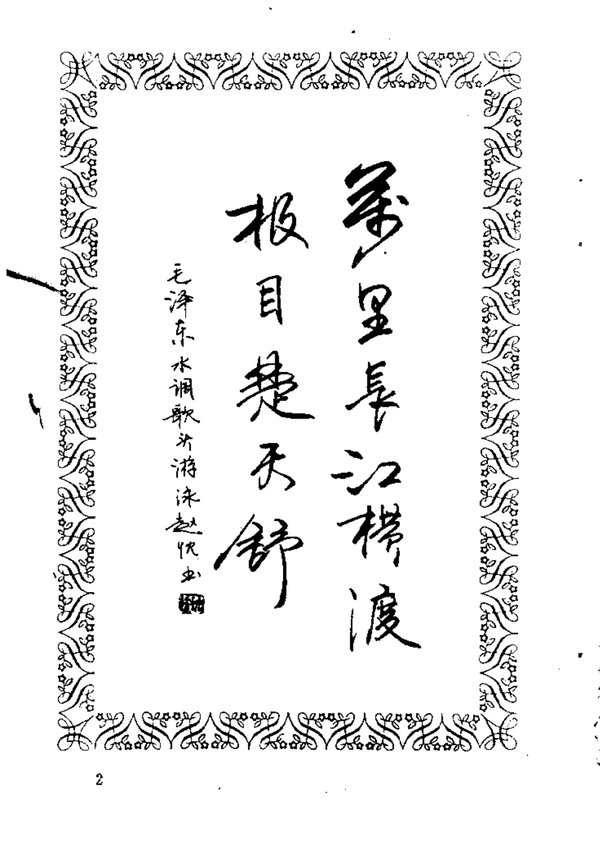 萬里長江橫渡
极目楚天舒
毛泽东水调歌头游泳赵忱书
2